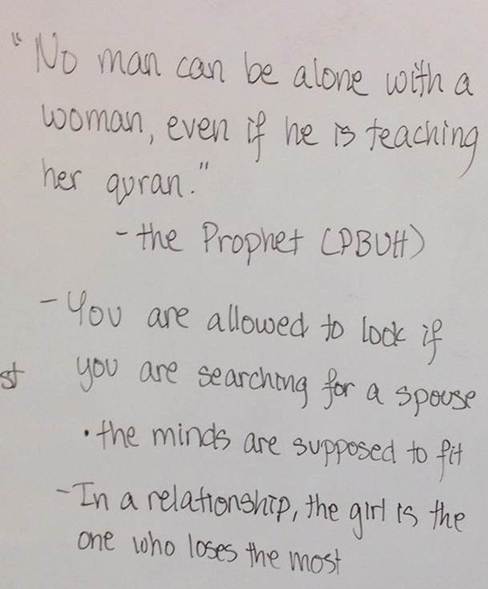 "No man can be alone with a
woman, even if he is teaching
her quran."
- the Prophet (PBUH)
- You are allowed to look if
st you are searching for a spouse
• the minds are supposed to fit
- In a relationship, the girl is the
one who loses the most